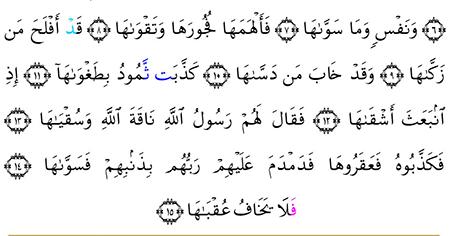 ﴿٦﴾ وَنَفۡسٖ وَمَا سَوَّىٰهَا ﴿٧﴾ فَأَلۡهَمَهَا فُجُورَهَا وَتَقۡوَىٰهَا ﴿٨﴾ قَدۡ أَفۡلَحَ مَن
زَكَّىٰهَا ﴿٩﴾ وَقَدۡ خَابَ مَن دَسَّىٰهَا ﴿١٠﴾ كَذَّبَت ثَّمُودُ بِطَغۡوَىٰهَآ ﴿١١﴾ إِذِ
ٱنۢبَعَثَ أَشۡقَىٰهَا ﴿١٢﴾ فَقَالَ لَهُمۡ رَسُولُ ٱللَّهِ نَاقَةَ ٱللَّهِ وَسُقۡيَٰهَا ﴿١٣﴾
فَكَذَّبُوهُ فَعَقَرُوهَا فَدَمۡدَمَ عَلَيۡهِمۡ رَبُّهُم بِذَنۢبِهِمۡ فَسَوَّىٰهَا ﴿١٤﴾
فَلَا يَخَافُ عُقۡبَٰهَا ﴿١٥﴾